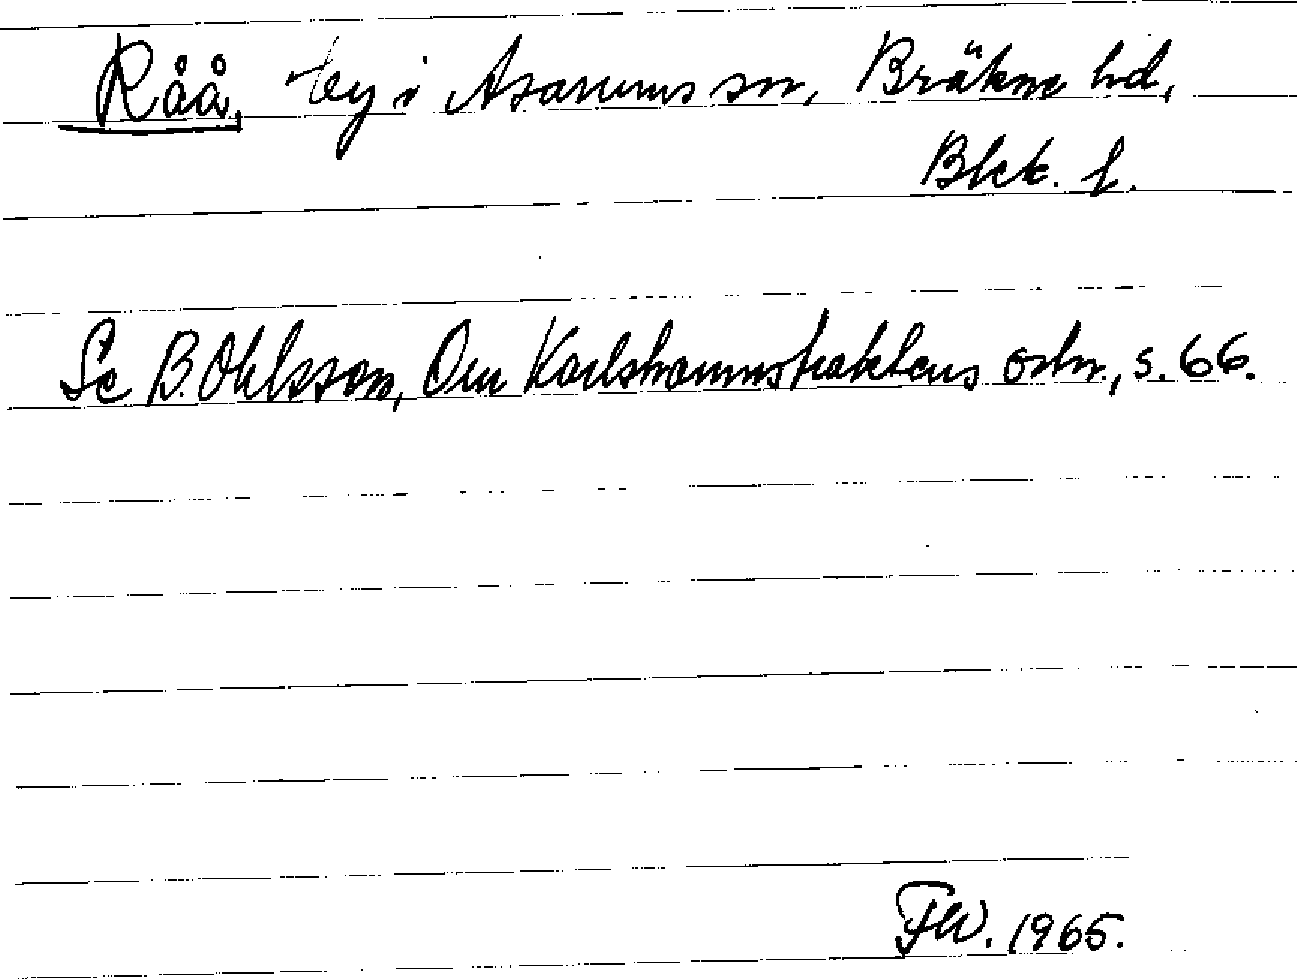 Råå, by i Asarums sn, Bräkne hd,
Blek. l.
Se B. Ohlsson, Om Karlshamnstraktens ortn., s. 66.
FW. 1965.